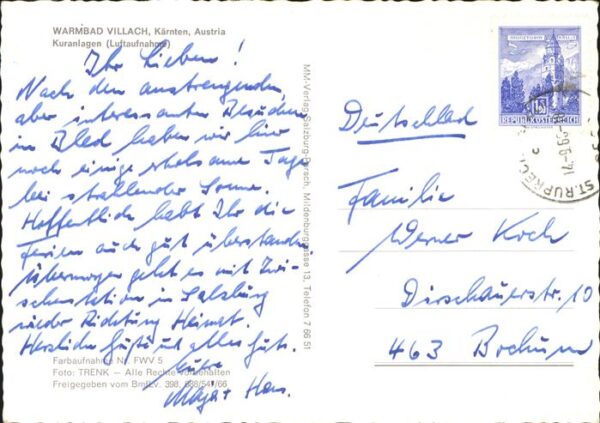 WARMBAD VILLACH, Kärnten, Austria
Kuranlagen (Luftaufnahme)
Ihr Lieben!
Nach den anstrengenden,
aber interessanten Besuchen
in Bled haben wir hier
noch einige erholsame Tage
bei strahlender Sonne.
Hoffentlich habt Ihr die
Ferien auch gut überstanden
Übermorgen geht es mit Zwi-
schenstation in Salzburg
wieder Richtung Heimat.
Herzliche Grüße und alles Gute.
Eure
Hans.
Farbaufnahme Nr. FWV 5
Foto: TRENK — Alle Rechte vorbehalten
Freigegeben vom BmfLv. 398
MM-Verlag Salzburg-Parsch, Mildenburggasse 13, Telefon 7 66 51
REPUBLIK ÖSTERREICH
ST. RUPRECHT
-29.6.71
Deutschland
Familie
Werner Koch
Dirschauerstr. 10
463 Bochum